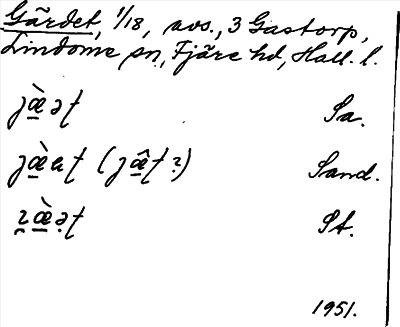 Gärdet, 1/18, avs., 3 Gastorp,
Lindome sn, Fjäre hd, Hall. l.
jæ̠̀əʈ Sa.
jæ̠̀aʈ (jæ̠̂ʈ ?) Sand.
ɪæ̠̀əʈ St.
1951.